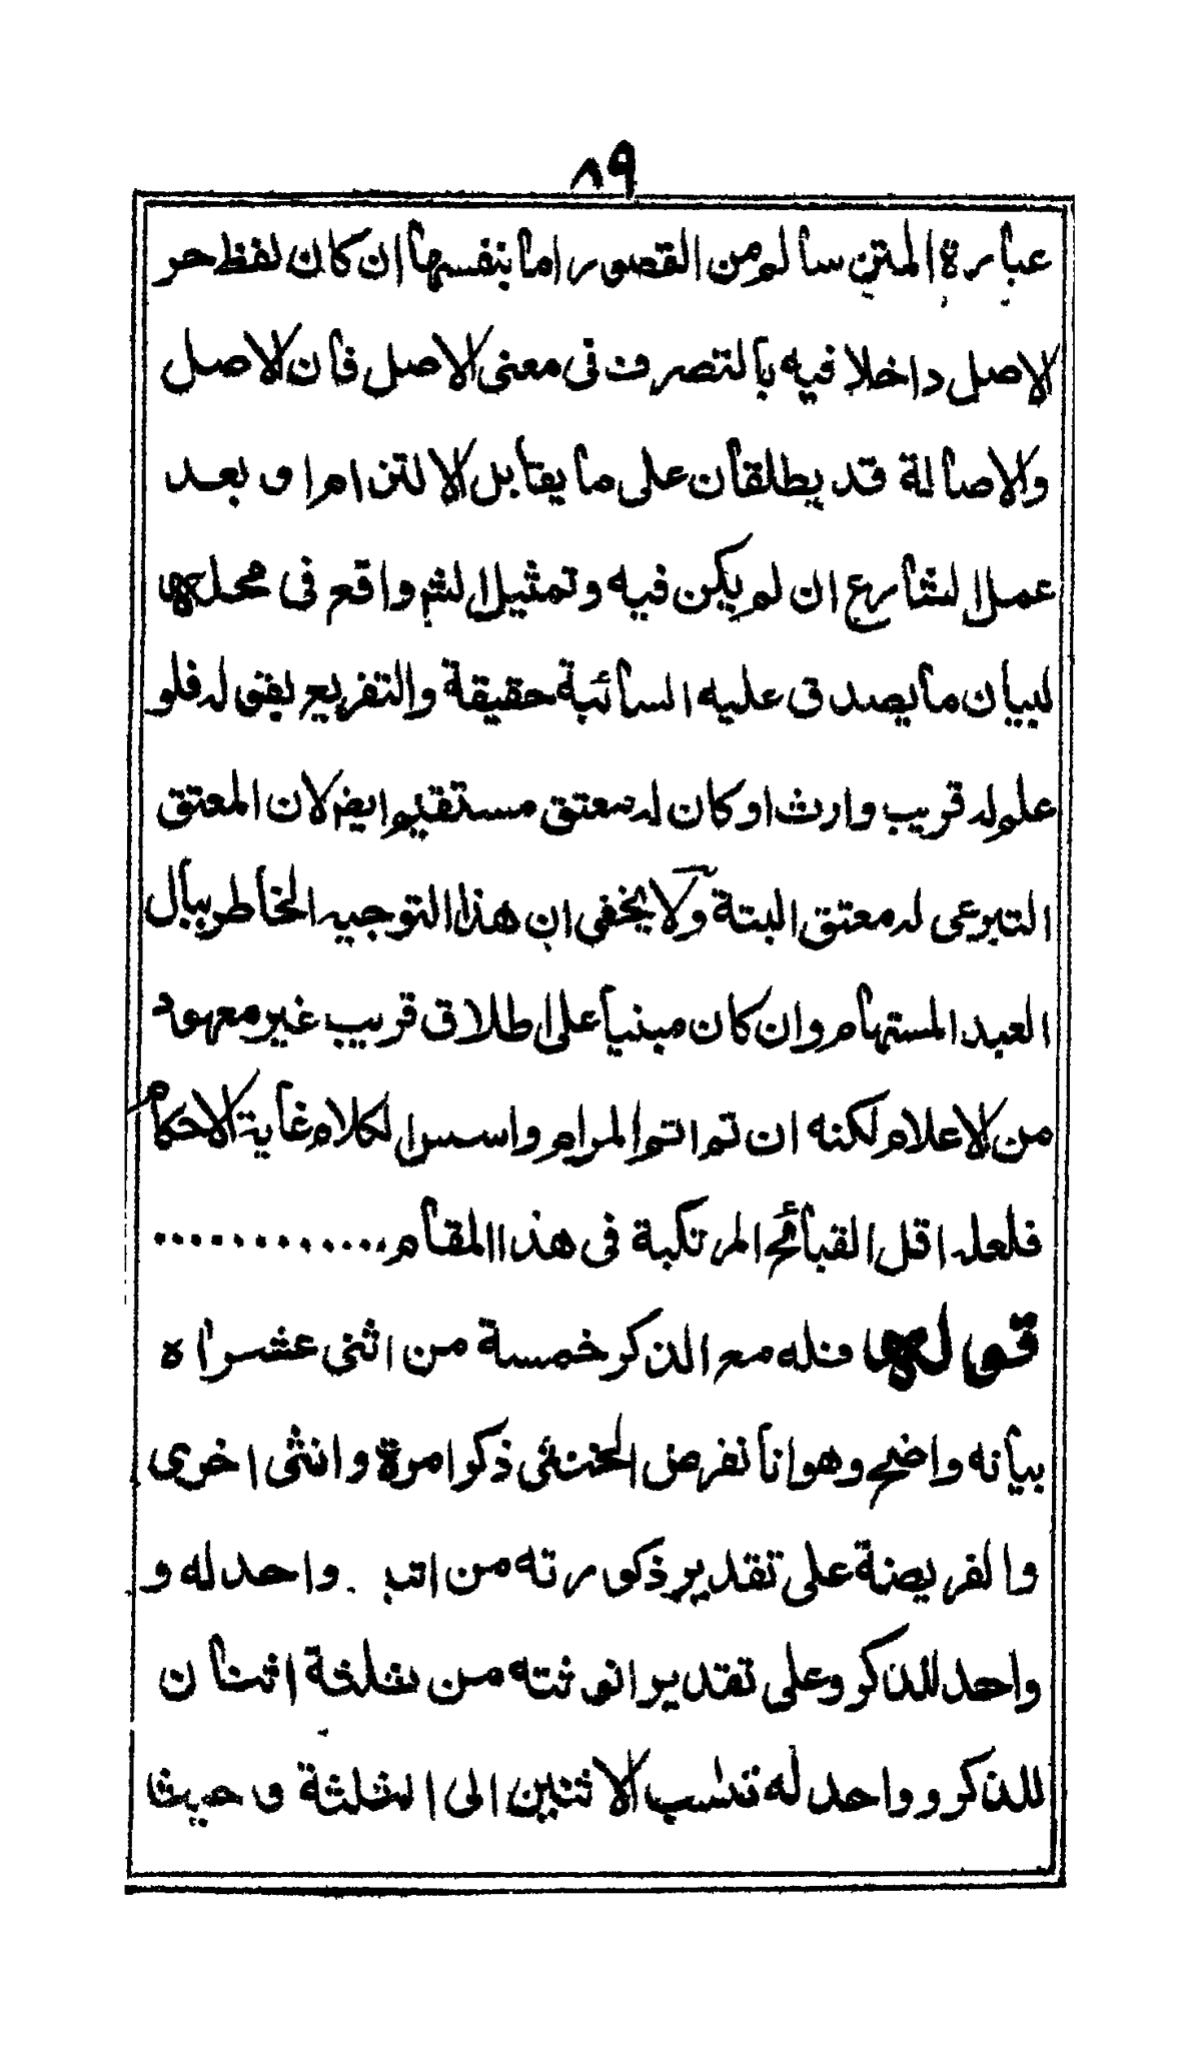 ٨٩
عبارة المتن سالم من القصور اما بنفسها ان كان لفظ حر
الاصل داخلا فيه بالتصرف فى معنى الاصل فان الاصل
والاصالة قد يطلقان على ما يقابل الالتزام او بعد
عمل الشارع ان لم يكن فيه وتمثيل الشم واقع فى محله
لبيان ما يصدق عليه السائبة حقيقة والتفريع بقوله فلو
علم له قريب وارث او كان له معتق مستقيم ايضا لان المعتق
التبرعى له معتق البتة ولا يخفى ان هذا التوجيه الخاطر ببال
العبد المستهام وان كان مبنيا على اطلاق قريب غير معهود
من الاعلام لكنه ان تم اتم المرام واسس الكلام غاية الاحكام
فلعله اقل القبائح المرتكبة فى هذا المقام ............
قوله فله مع الذكر خمسة من اثنى عشر اه
بيانه واضح وهو انا نفرض الخنثى ذكرا مرة وانثى اخرى
والفريضة على تقدير ذكورته من اثنين واحد له و
واحد للذكر وعلى تقدير انوثته من ثلثة اثنان
للذكر وواحد له تنسب الاثنين الى الثلثة وحيث